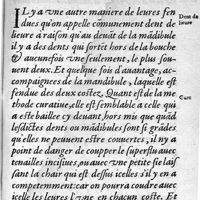 Il y a vne autre maniere de leures fen
dues qu'on appelle cõmunement dent de
lieure à raison qu'au deuāt de la mādibule
il y a des dents qui sortēt hors de la bouche
& aucunefois vne seulement, le plus sou-
uent deux. Et quelque fois d'auantage, ac-
compaignees de la mandibule, laquelle est
fendue des deux costez. Quant est de la me-
thode curatiue, elle est semblable a celle qui
a este baillee cy deuant, hors mis que quād
lesdictes dents ou mādibules sont si grādes
qu'elles ne peuuent estre couuertes, il n'y a
point de danger de coupper le superflu auec
tenailles incisiues, ou auec vne petite sie laif
sant la chair qui est dessus icelles s'il y en a
competemment: car on pourra coudre auec
icelle les leures & vne en chacun coste. Et
Dent de
lieure
Cure